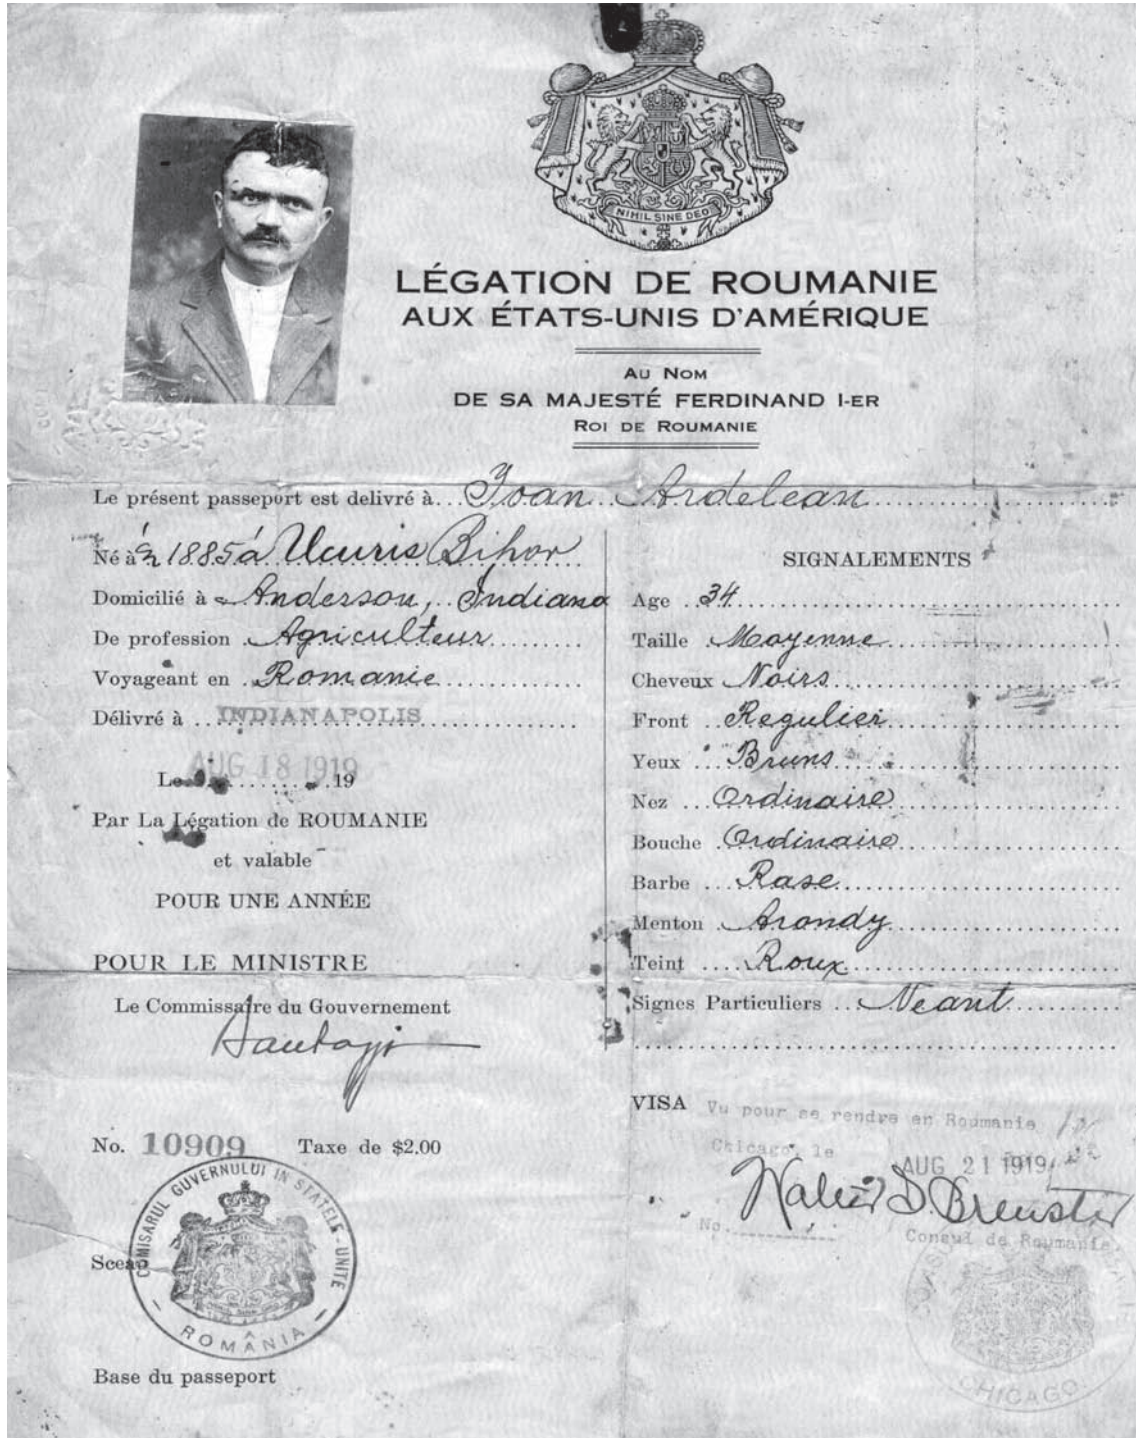 NIHIL SINE DEO
LÉGATION DE ROUMANIE
AUX ÉTATS-UNIS D'AMÉRIQUE
AU NOM
DE SA MAJESTÉ FERDINAND I-ER
ROI DE ROUMANIE
Le présent passeport est delivré à Ioan Ardelean
Né à 1885 à Ucuris Bihor
Domicilié à Anderson, Indiana
De profession Agriculteur
Voyageant en Romanie
Délivré à INDIANAPOLIS
AUG 18 1919
Le 19
Par La Légation de ROUMANIE
et valable
POUR UNE ANNÉE
POUR LE MINISTRE
Le Commissaire du Gouvernement
No. 10909 Taxe de $2.00
COMISARUL GUVERNULUI IN STATELE-UNITE
ROMÂNIA
Sceau
Base du passeport
SIGNALEMENTS
Age 34
Taille Moyenne
Cheveux Noirs
Front Regulier
Yeux Bruns
Nez Ordinaire
Bouche Ordinaire
Barbe Rase
Menton Arondy
Teint Roux
Signes Particuliers Neant
VISA Vu pour se rendre en Roumanie
Chicago, le AUG 21 1919
Walter S. Brewster
No.
Consul de Roumanie
CHICAGO